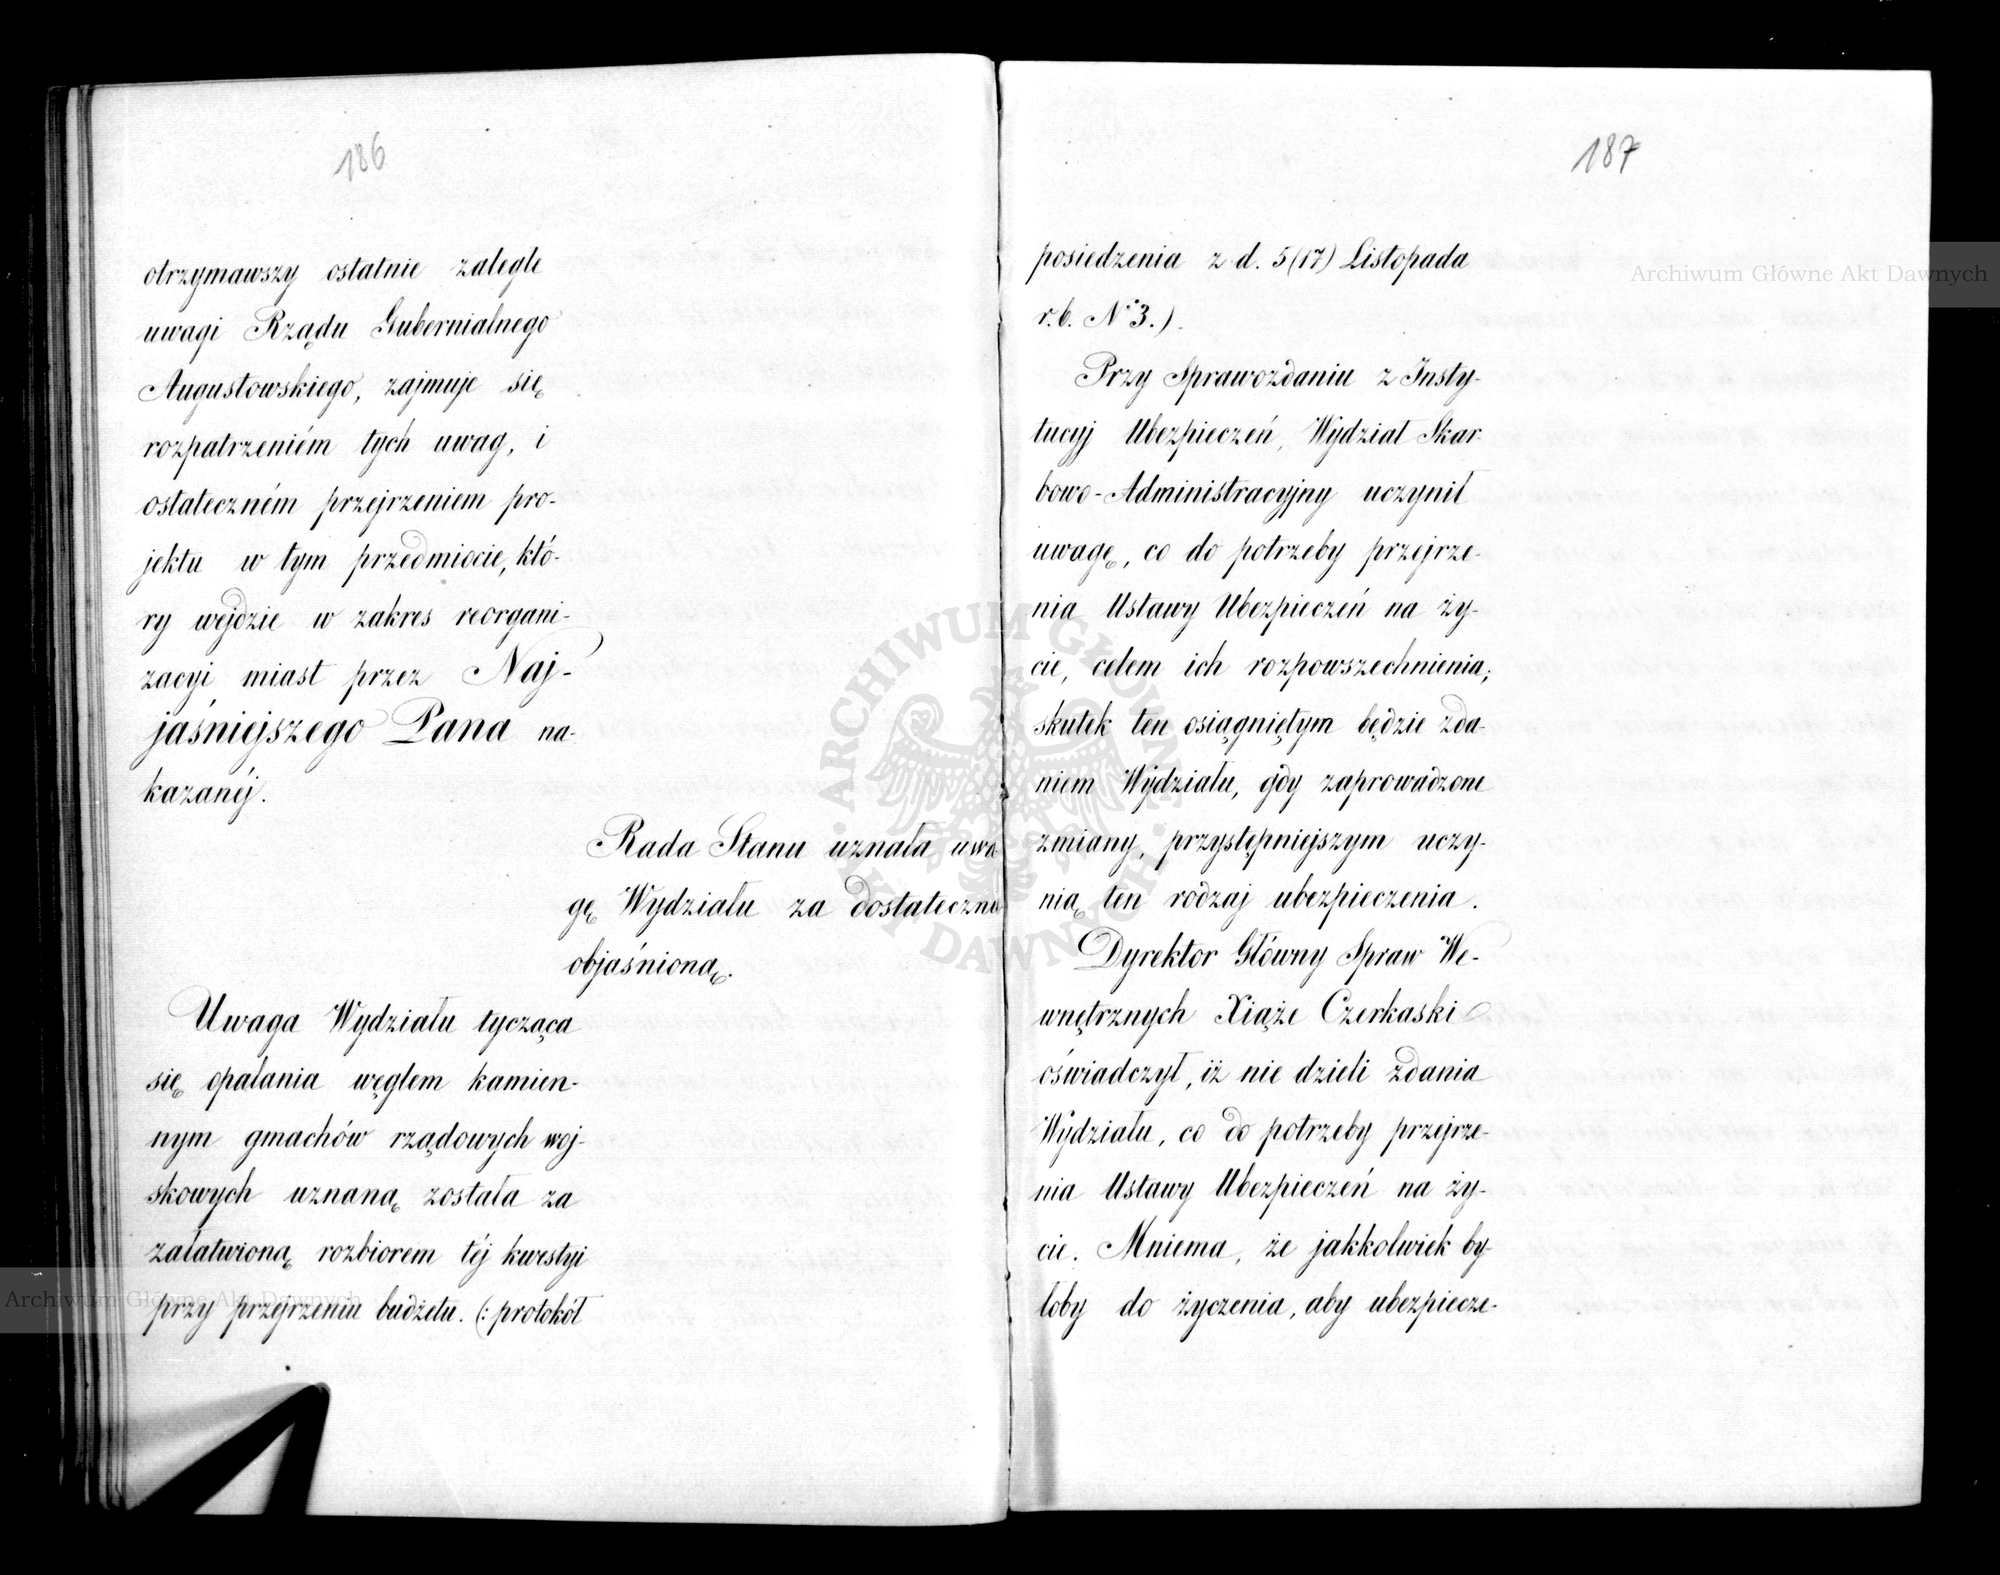 186
otrzymawszy ostatnie zaległe
uwagi Rządu Gubernialnego
Augustowskiego, zajmuje się
rozpatrzeniém tych uwag, i
ostateczném przejrzeniem pro-
jektu w tym przedmiocie, któ-
ry wejdzie w zakres reorgani-
zacyi miast przez Naj-
jaśniejszego Pana na-
kazanéj.
Rada Stanu uznała uwa
gę Wydziału za dostateczną
objaśnioną.
Uwaga Wydziału tycząca
się opalania węglem kamien-
nym gmachów rządowych woj-
skowych uznaną została za
załatwioną rozbiorem téj kwestyi
przy przejrzeniu budżetu. (: protokół
187
posiedzenia z d. 5 (17) Listopada
r. b. No 3.)
Przy Sprawozdaniu z Insty-
tucyj Ubezpieczeń, Wydział Skar-
bowo-Administracyjny uczynił
uwagę, co do potrzeby przejrze-
nia Ustawy Ubezpieczeń na ży-
cie, celem ich rozpowszechnienia;
skutek ten osiągniętym będzie zda-
niem Wydziału, gdy zaprowadzone
zmiany, przystępniejszym uczy-
nią ten rodzaj ubezpieczenia.
Dyrektor Główny Spraw We-
wnętrznych Xiąże Czerkaski
oświadczył, iż nie dzieli zdania
Wydziału, co do potrzeby przejrze-
nia Ustawy Ubezpieczeń na ży-
cie. Mniema, że jakkolwiek by-
łoby do życzenia, aby ubezpiecze-
Archiwum Główne Akt Dawnych
Archiwum Główne Akt Dawnych
ARCHIWUM GŁÓWNE AKT DAWNYCH